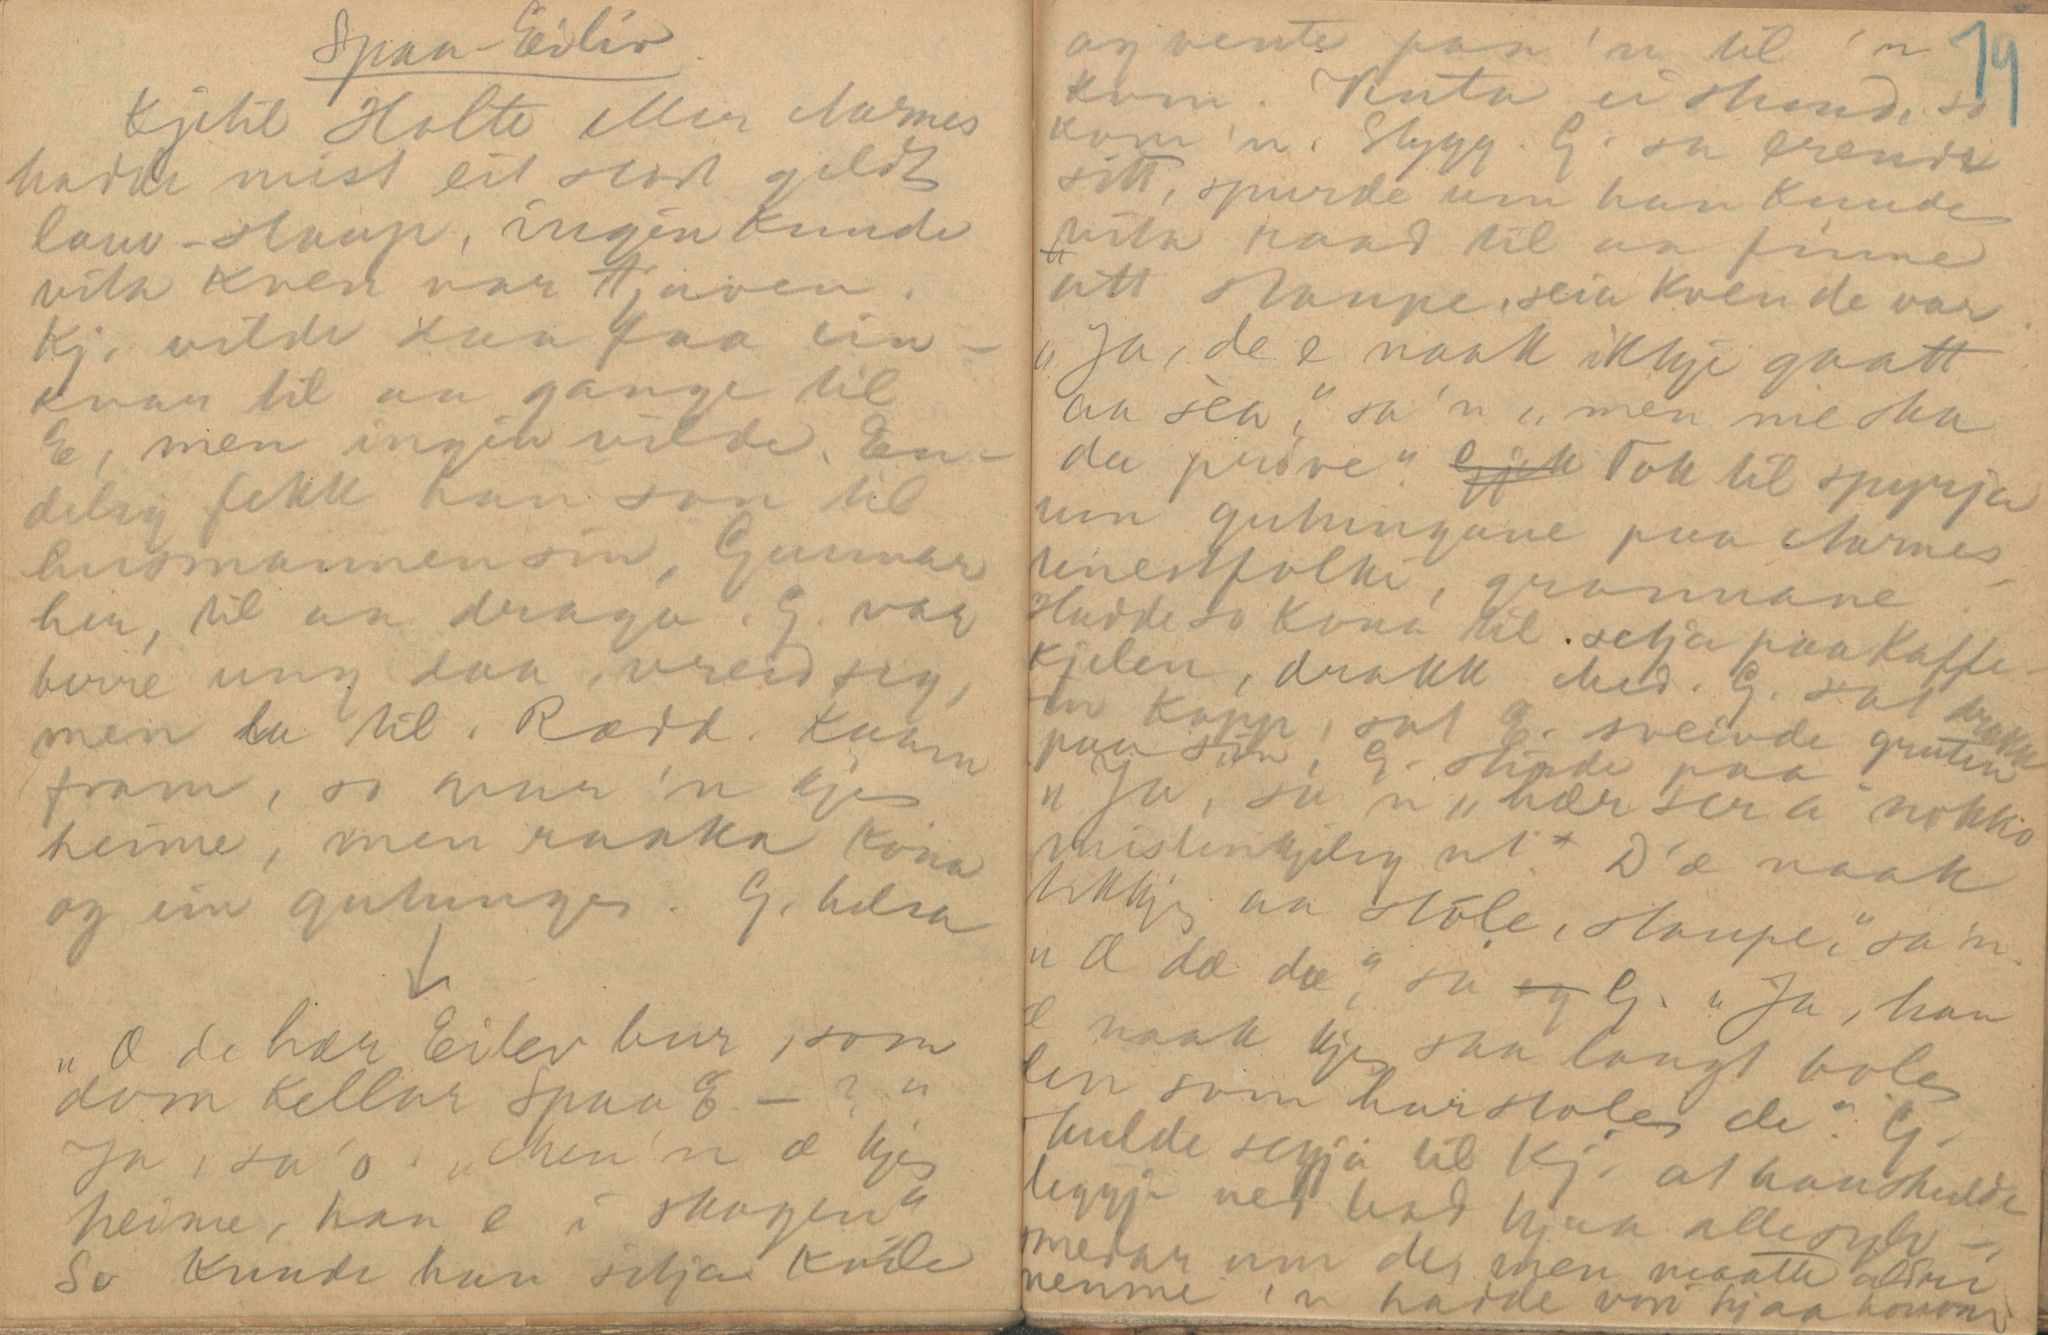 Spaa-Eiliv.
Kjetil Holte eller Aarnes
hadde mist eit stort gildt
lauv-staup, ingin kunde
vita kven var tjuven.
Kj. vilde daa faa ein-
kvar til aa gange til
E, men ingin vilde. En-
deleg fekk han son til
husmannen sin, Gunnar
her, til aa draga. G. var
berre ung daa, vreid seg,
men la til. Rædd. Kaam
fram, so var 'n kje
heime, men raaka kona
og ein gutunge. G. helsa
↓
"Æ de hær Eilev bur, som
dom kellar Spaa E - ?"
Ja, sa 'o. "Men 'n æ kje
heime, han e i skogen"
So kunde han setja kvile
og vente paa 'n til 'n
kom. Venta ei stund, so
kom 'n. Stygg. G. sa erende
sitt, spurde um han kunde
vita raad til aa finne
att staupe, seia kven de var
"Ja, de e naak ikkje gaatt
aa sea," sa 'n, "men me ska
da prøve". Gjek Tok til spyrja
um gutungane paa Aarnes,
tinestfolki, grannane.
Hadde so kona til setja paa kaffe-
kjelen, drakk med. G. sat drakk
in kopp, sat E. sveivde gruten
paa sin, G. stirde paa
"Ja, sa 'n "hær ser a nokko
mistenkjeleg ut." D'æ naak
ikkje aa stole, staupe," sa 'n.
"Æ dæ dæ," sa og G. "Ja, han
æ naak kje saa langt bole
den som har stole de". G.
skulde seggja til Kj. at han skulde
leggja ned bod hjaa alle sylv-
smedar um de, men maatte aldri
nemne 'n hadde vori hjaa honom
19